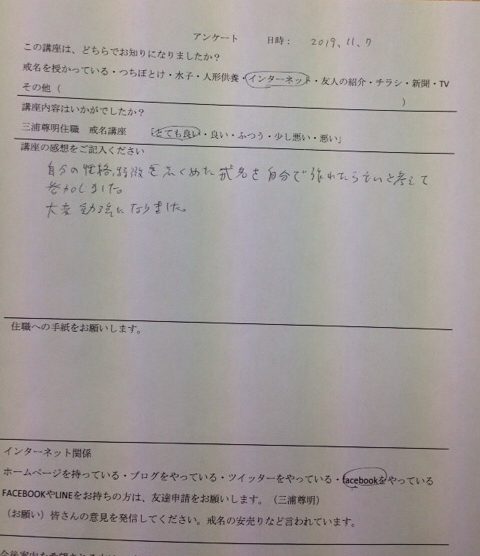 アンケート　日時：　2019、11、7
この講座は、どちらでお知りになりましたか？
戒名を授かっている・つちぼとけ・水子・人形供養・インターネット・友人の紹介・チラシ・新聞・TV
その他（　　　　　　　　　　）
講座内容はいかがでしたか？
三浦尊明住職　戒名講座　「とても良い・良い・ふつう・少し悪い・悪い」
講座の感想をご記入ください
自分の性格、特徴をふくめた戒名を自分で作れたらよいと考えて
参加しました。
大変勉強になりました。
住職への手紙をお願いします。
インターネット関係
ホームページを持っている・ブログをやっている・ツイッターをやっている・facebookをやっている
FACEBOOKやLINEをお持ちの方は、友達申請をお願いします。（三浦尊明）
（お願い）皆さんの意見を発信してください。戒名の安売りなど言われています。